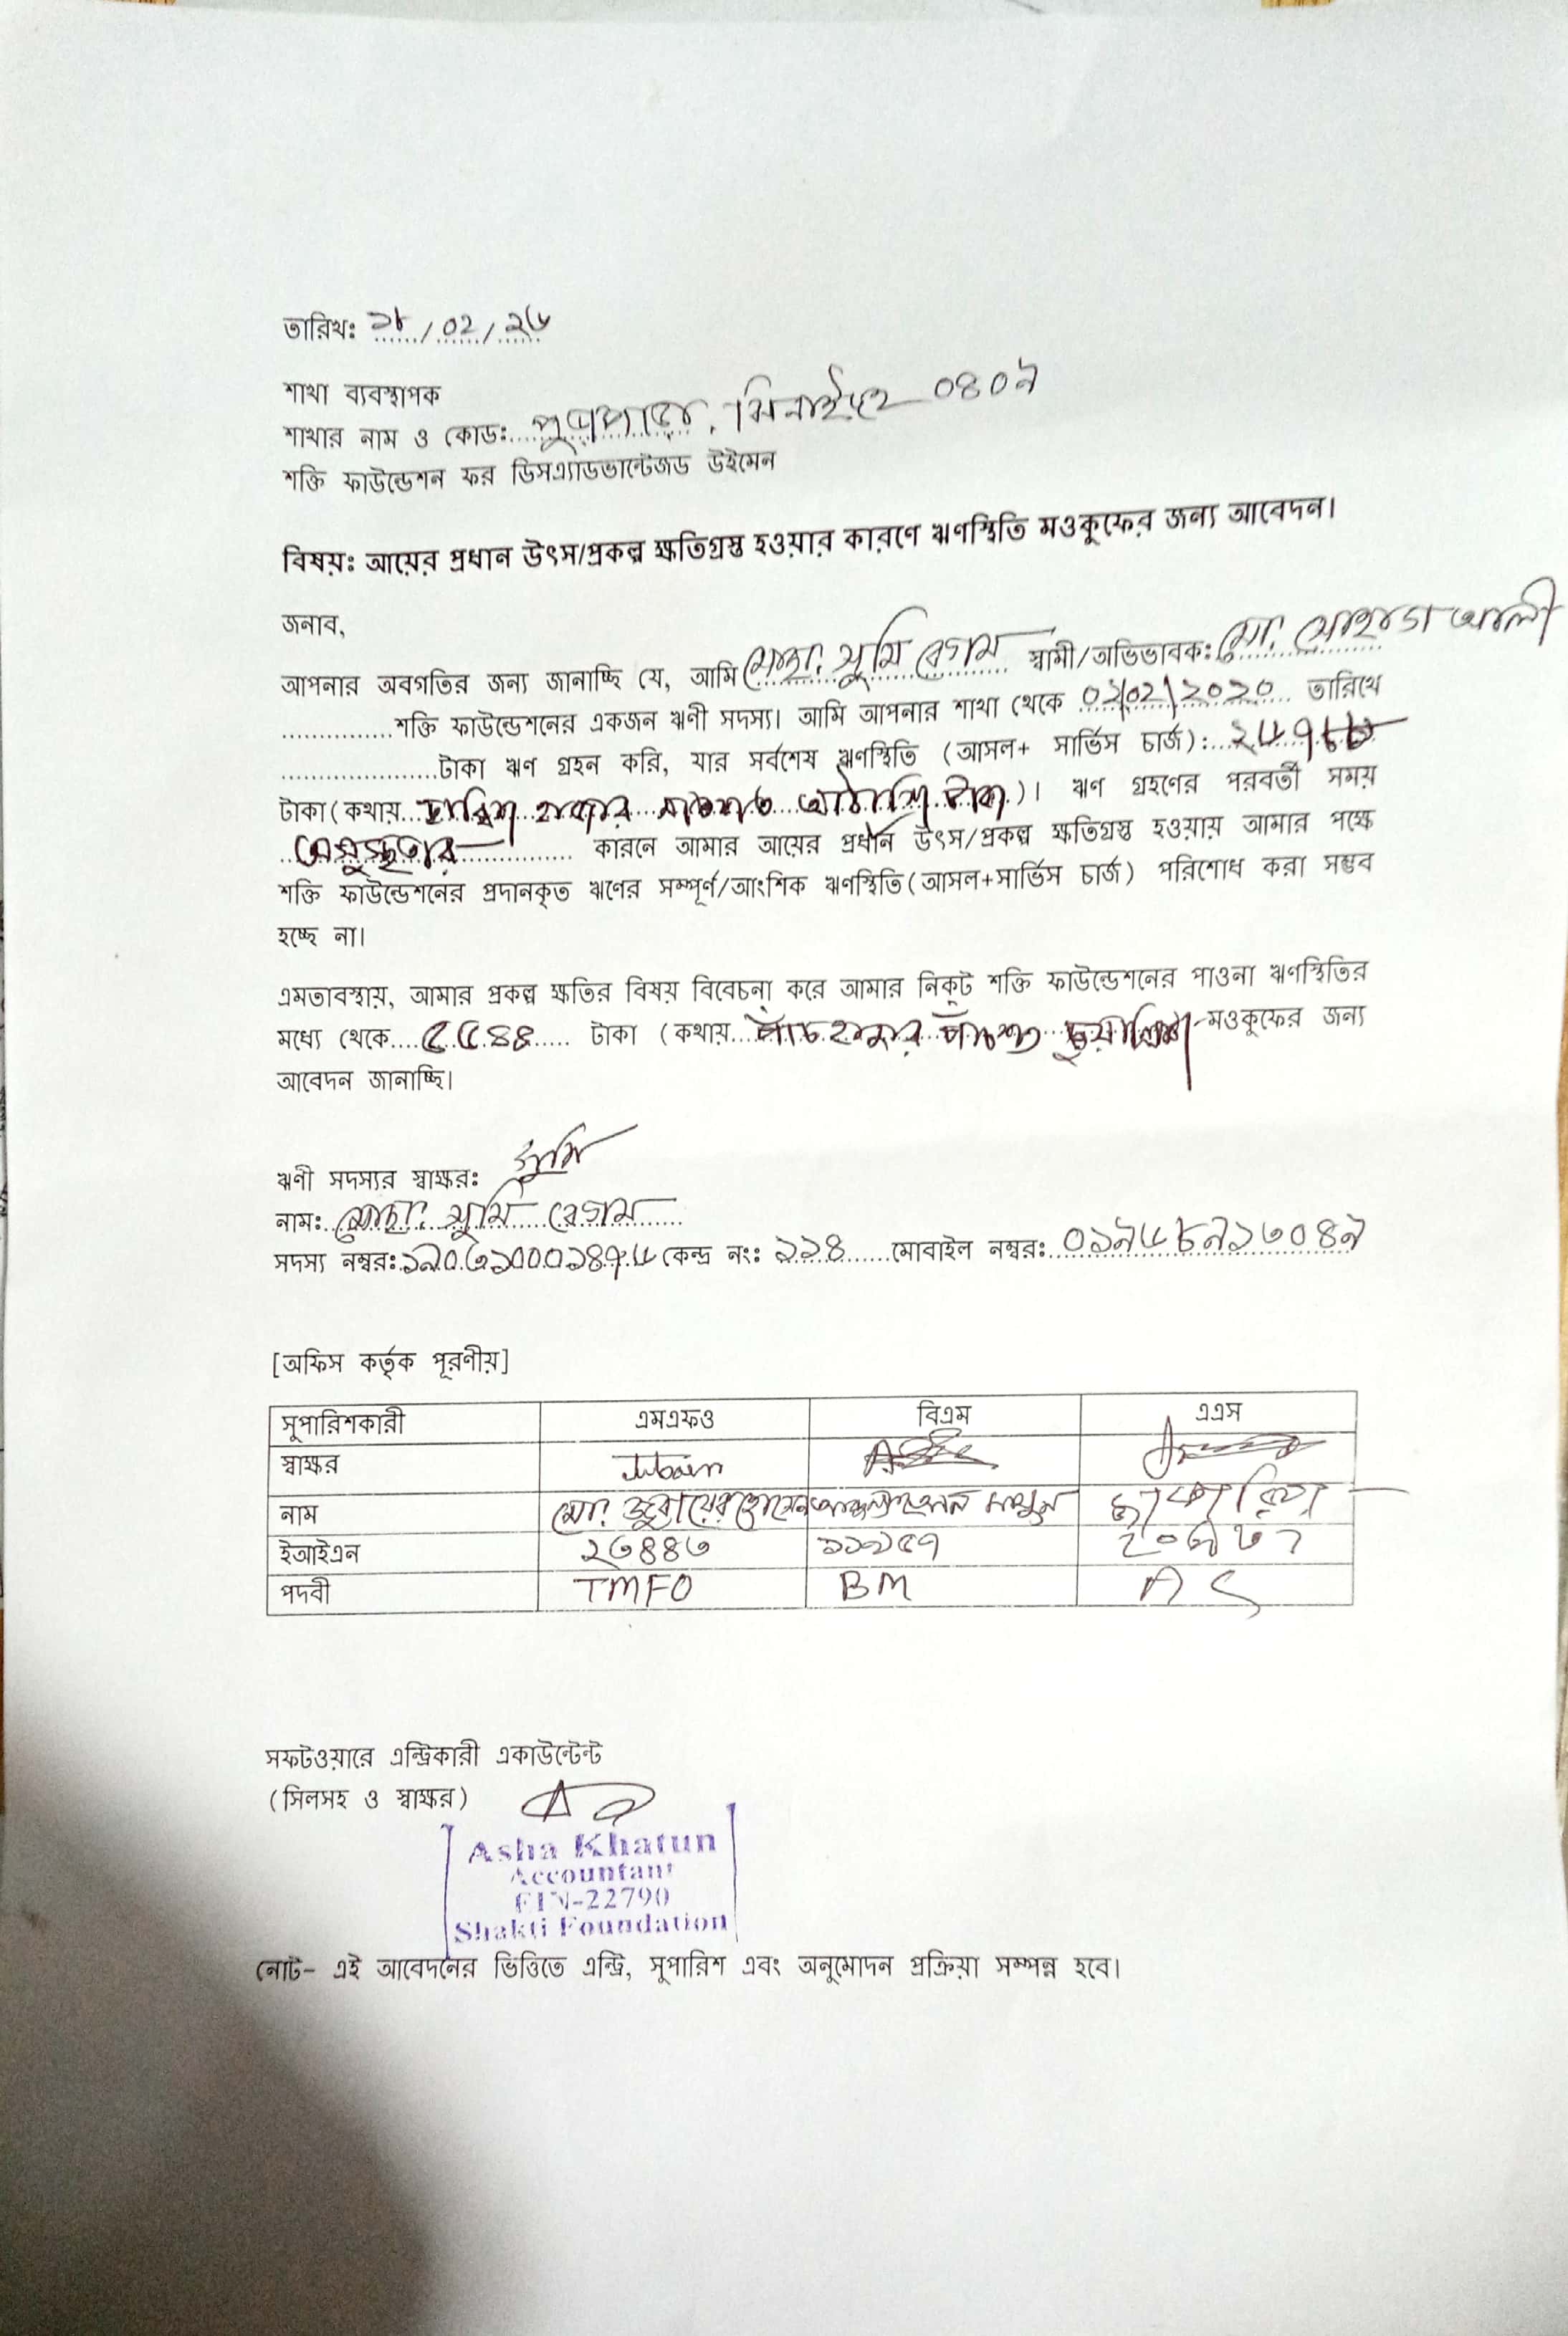 তারিখঃ ১৮/০২/২৬
শাখা ব্যবস্থাপক
শাখার নাম ও কোডঃ..... ঝিনাইদহ ০৪০৯
শক্তি ফাউন্ডেশন ফর ডিসএ্যাডভান্টেজড উইমেন
বিষয়ঃ আয়ের প্রধান উৎস/প্রকল্প ক্ষতিগ্রস্ত হওয়ার কারণে ঋণস্থিতি মওকুফের জন্য আবেদন।
জনাব,
আপনার অবগতির জন্য জানাচ্ছি যে, আমি মোছা. সুমি বেগম স্বামী/অভিভাবক: মো. সোহাগ আলী
...............শক্তি ফাউন্ডেশনের একজন ঋণী সদস্য। আমি আপনার শাখা থেকে ০২/০২/২০২০ তারিখে
.....................টাকা ঋণ গ্রহন করি, যার সর্বশেষ ঋণস্থিতি (আসল+ সার্ভিস চার্জ):..
টাকা (কথায়.. হাজার সাতশত আটাশি টাকা)। ঋণ গ্রহণের পরবর্তী সময়
অসুস্থতার ............... কারনে আমার আয়ের প্রধান উৎস/প্রকল্প ক্ষতিগ্রস্ত হওয়ায় আমার পক্ষে
শক্তি ফাউন্ডেশনের প্রদানকৃত ঋণের সম্পূর্ণ/আংশিক ঋণস্থিতি(আসল+সার্ভিস চার্জ) পরিশোধ করা সম্ভব
হচ্ছে না।
এমতাবস্থায়, আমার প্রকল্প ক্ষতির বিষয় বিবেচনা করে আমার নিকট শক্তি ফাউন্ডেশনের পাওনা ঋণস্থিতির
মধ্যে থেকে....৫৫৪৪..... টাকা (কথায়...পাঁচ হাজার পাঁচশত চুয়াল্লিশ মওকুফের জন্য
আবেদন জানাচ্ছি।
ঋণী সদস্যর স্বাক্ষর: সুমি
নাম: মোছা. সুমি বেগম
সদস্য নম্বর: কেন্দ্র নং: ২২৪......মোবাইল নম্বর:
[অফিস কর্তৃক পূরণীয়]
সুপারিশকারী এমএফও বিএম এএস
স্বাক্ষর
নাম মো. জুবায়ের হোসেন জাকারিয়া
ইআইএন ২৩৪৪৩ ১১৯৫৭
পদবী TMFO BM AS
সফটওয়ারে এন্ট্রিকারী একাউন্টেন্ট
(সিলসহ ও স্বাক্ষর)
Asha Khatun
Accountant
EIN-22790
Shakti Foundation
নোট- এই আবেদনের ভিত্তিতে এন্ট্রি, সুপারিশ এবং অনুমোদন প্রক্রিয়া সম্পন্ন হবে।